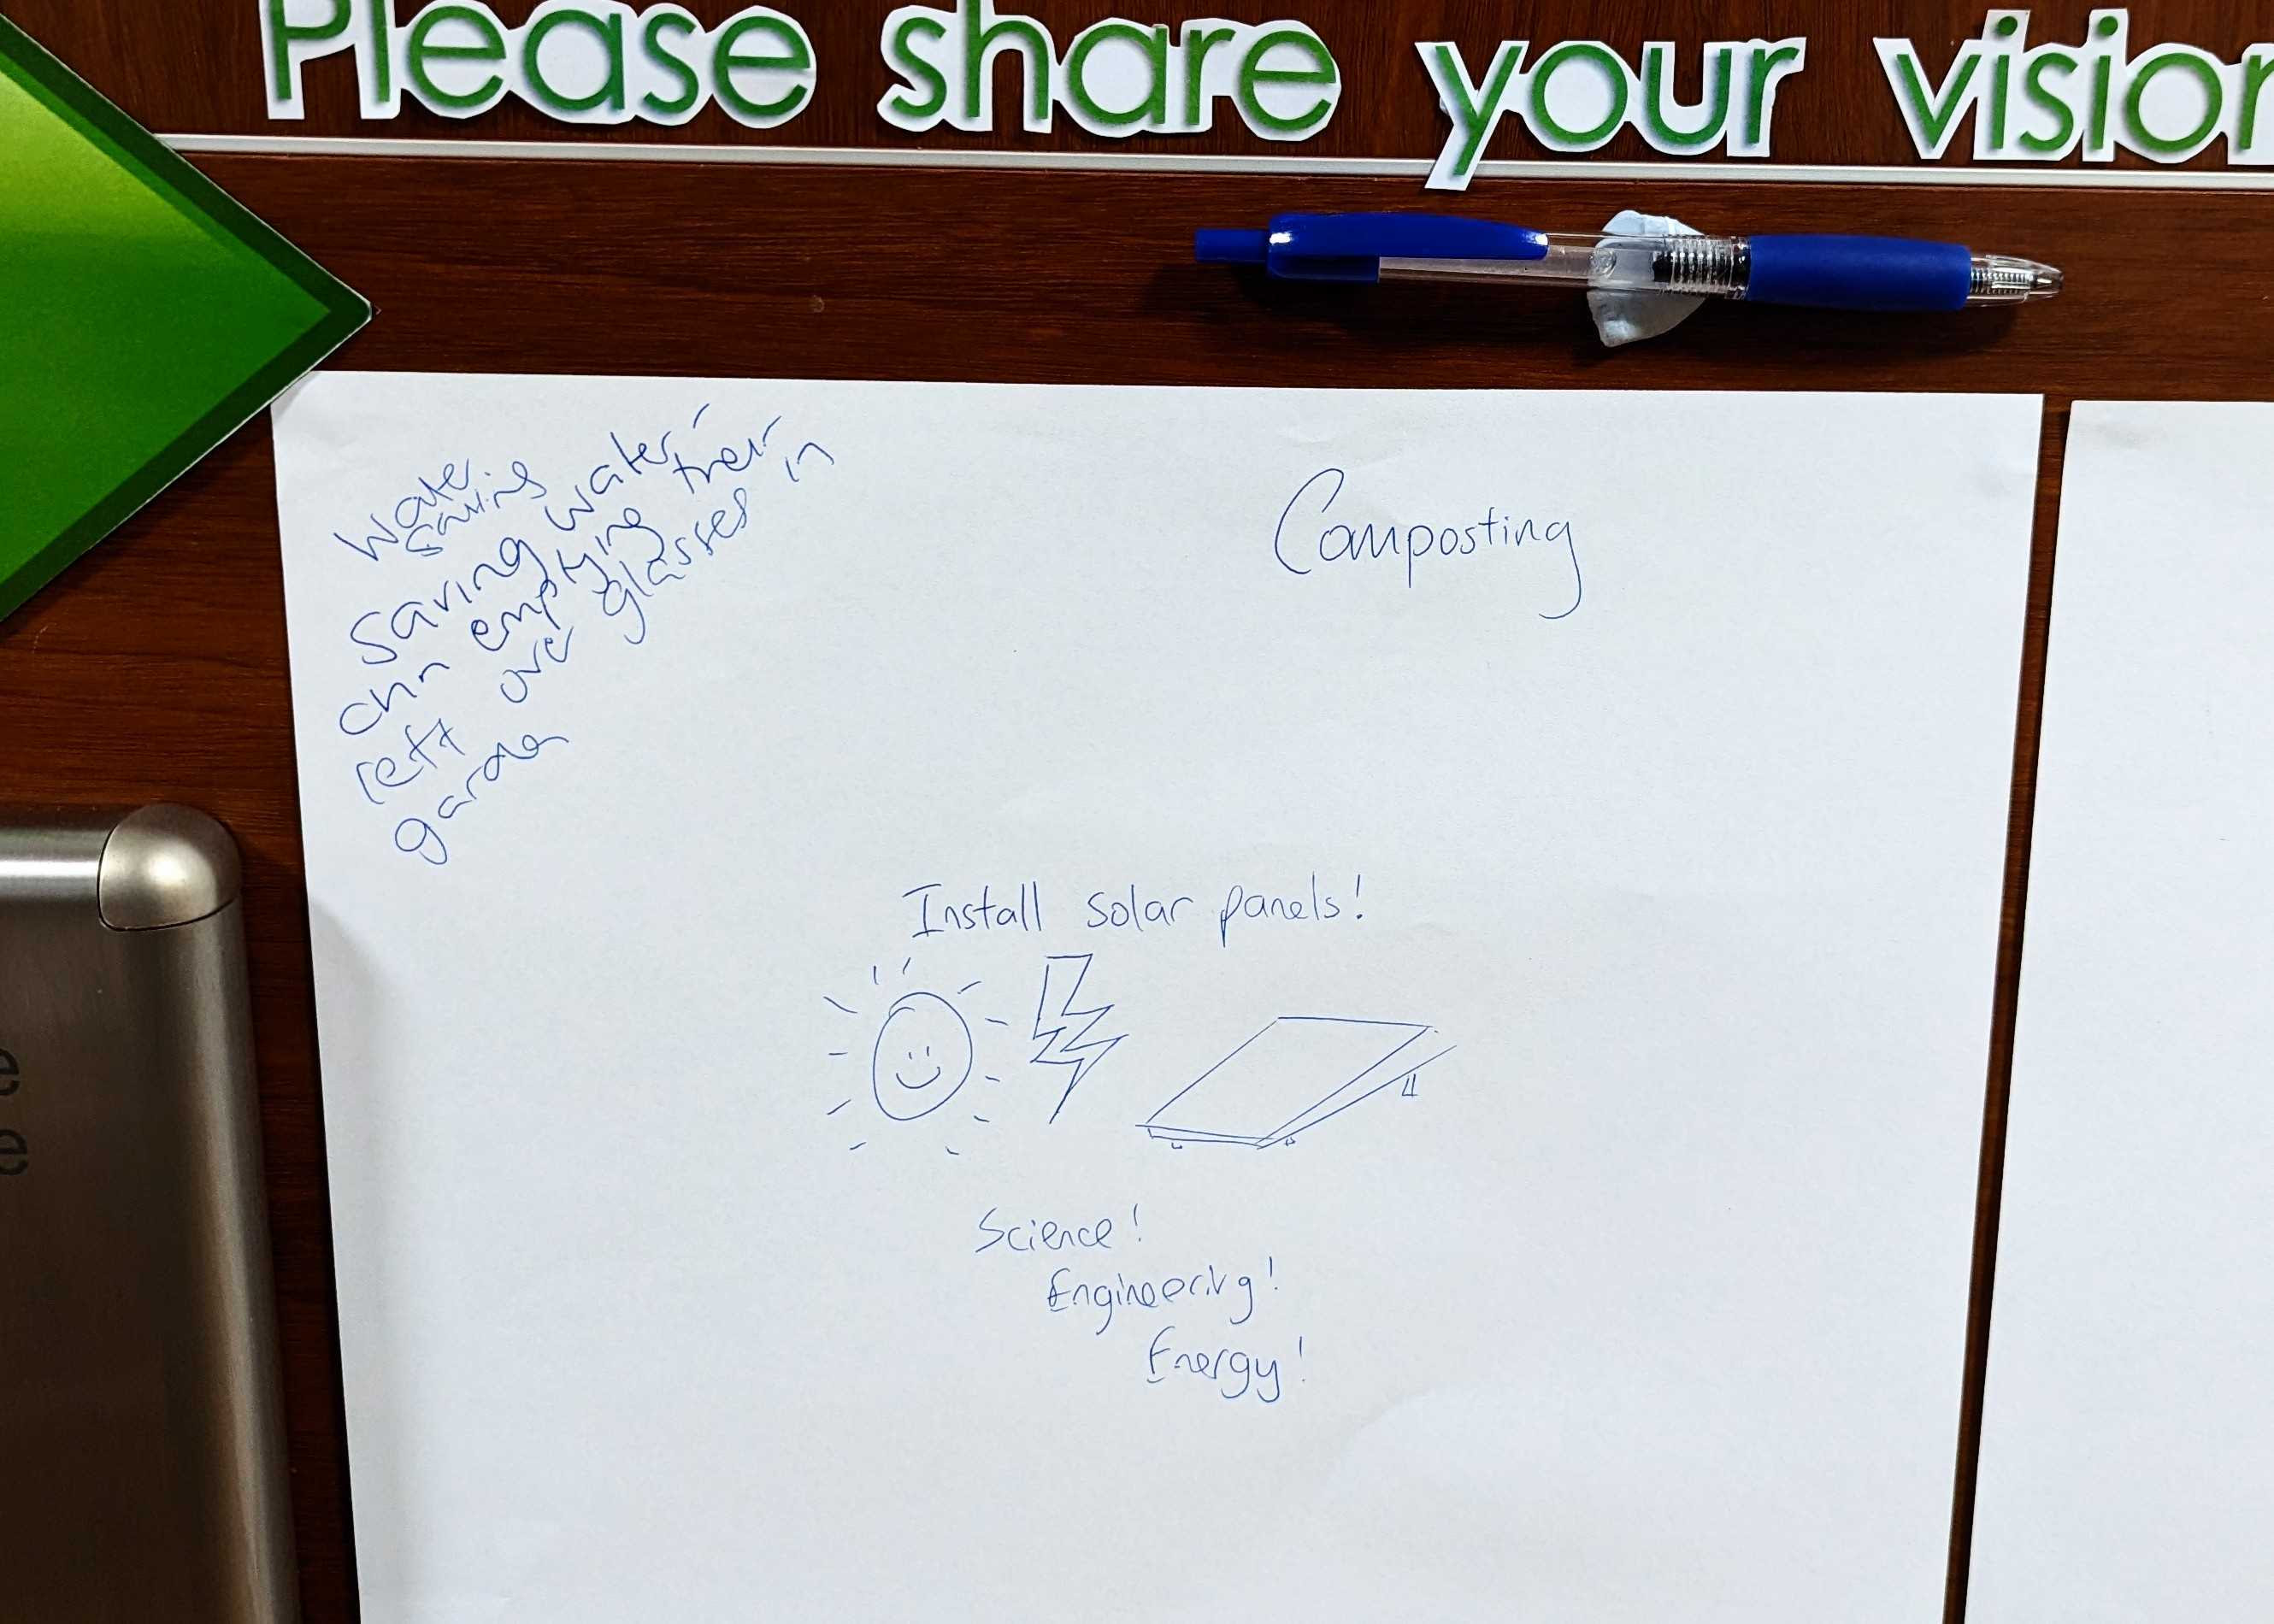 Please share your vision
Water
saving
Saving water,
chn emptying their
left over glasses in
garden
Composting
Install solar panels!
Science!
Engineering!
Energy!